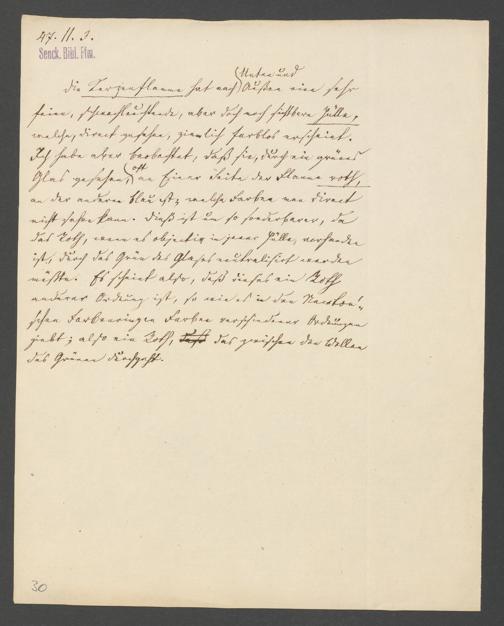 47. II. 3.
Senck. Bibl. Ffm.
Unten und
Die Kerzenflamme hat nach Außen eine sehr
feine, schwachleuchtende, aber doch noch sichtbare Hülle,
welche, direct gesehen, ziemlich farblos erscheint.
Ich habe aber beobachtet, daß sie, durch ein grünes
oft
Glas gesehen, an Einer Seite der Flamme roth,
an der anderen blau ist; welche Farben man direct
nicht sehen kann. Dieß ist um so sonderbarer, da
das Roth, wenn es objectiv in jener Hülle vorhanden
ist, durch das Grün des Glases neutralisirt werden
müßte. Es scheint also, daß dieses ein Roth
anderer Ordnung ist, so wie es in den Newton'-
schen Farbenringen Farben verschiedener Ordnungen
giebt; also ein Roth, daß das zwischen den Wellen
des Grünen durchgeht.
30